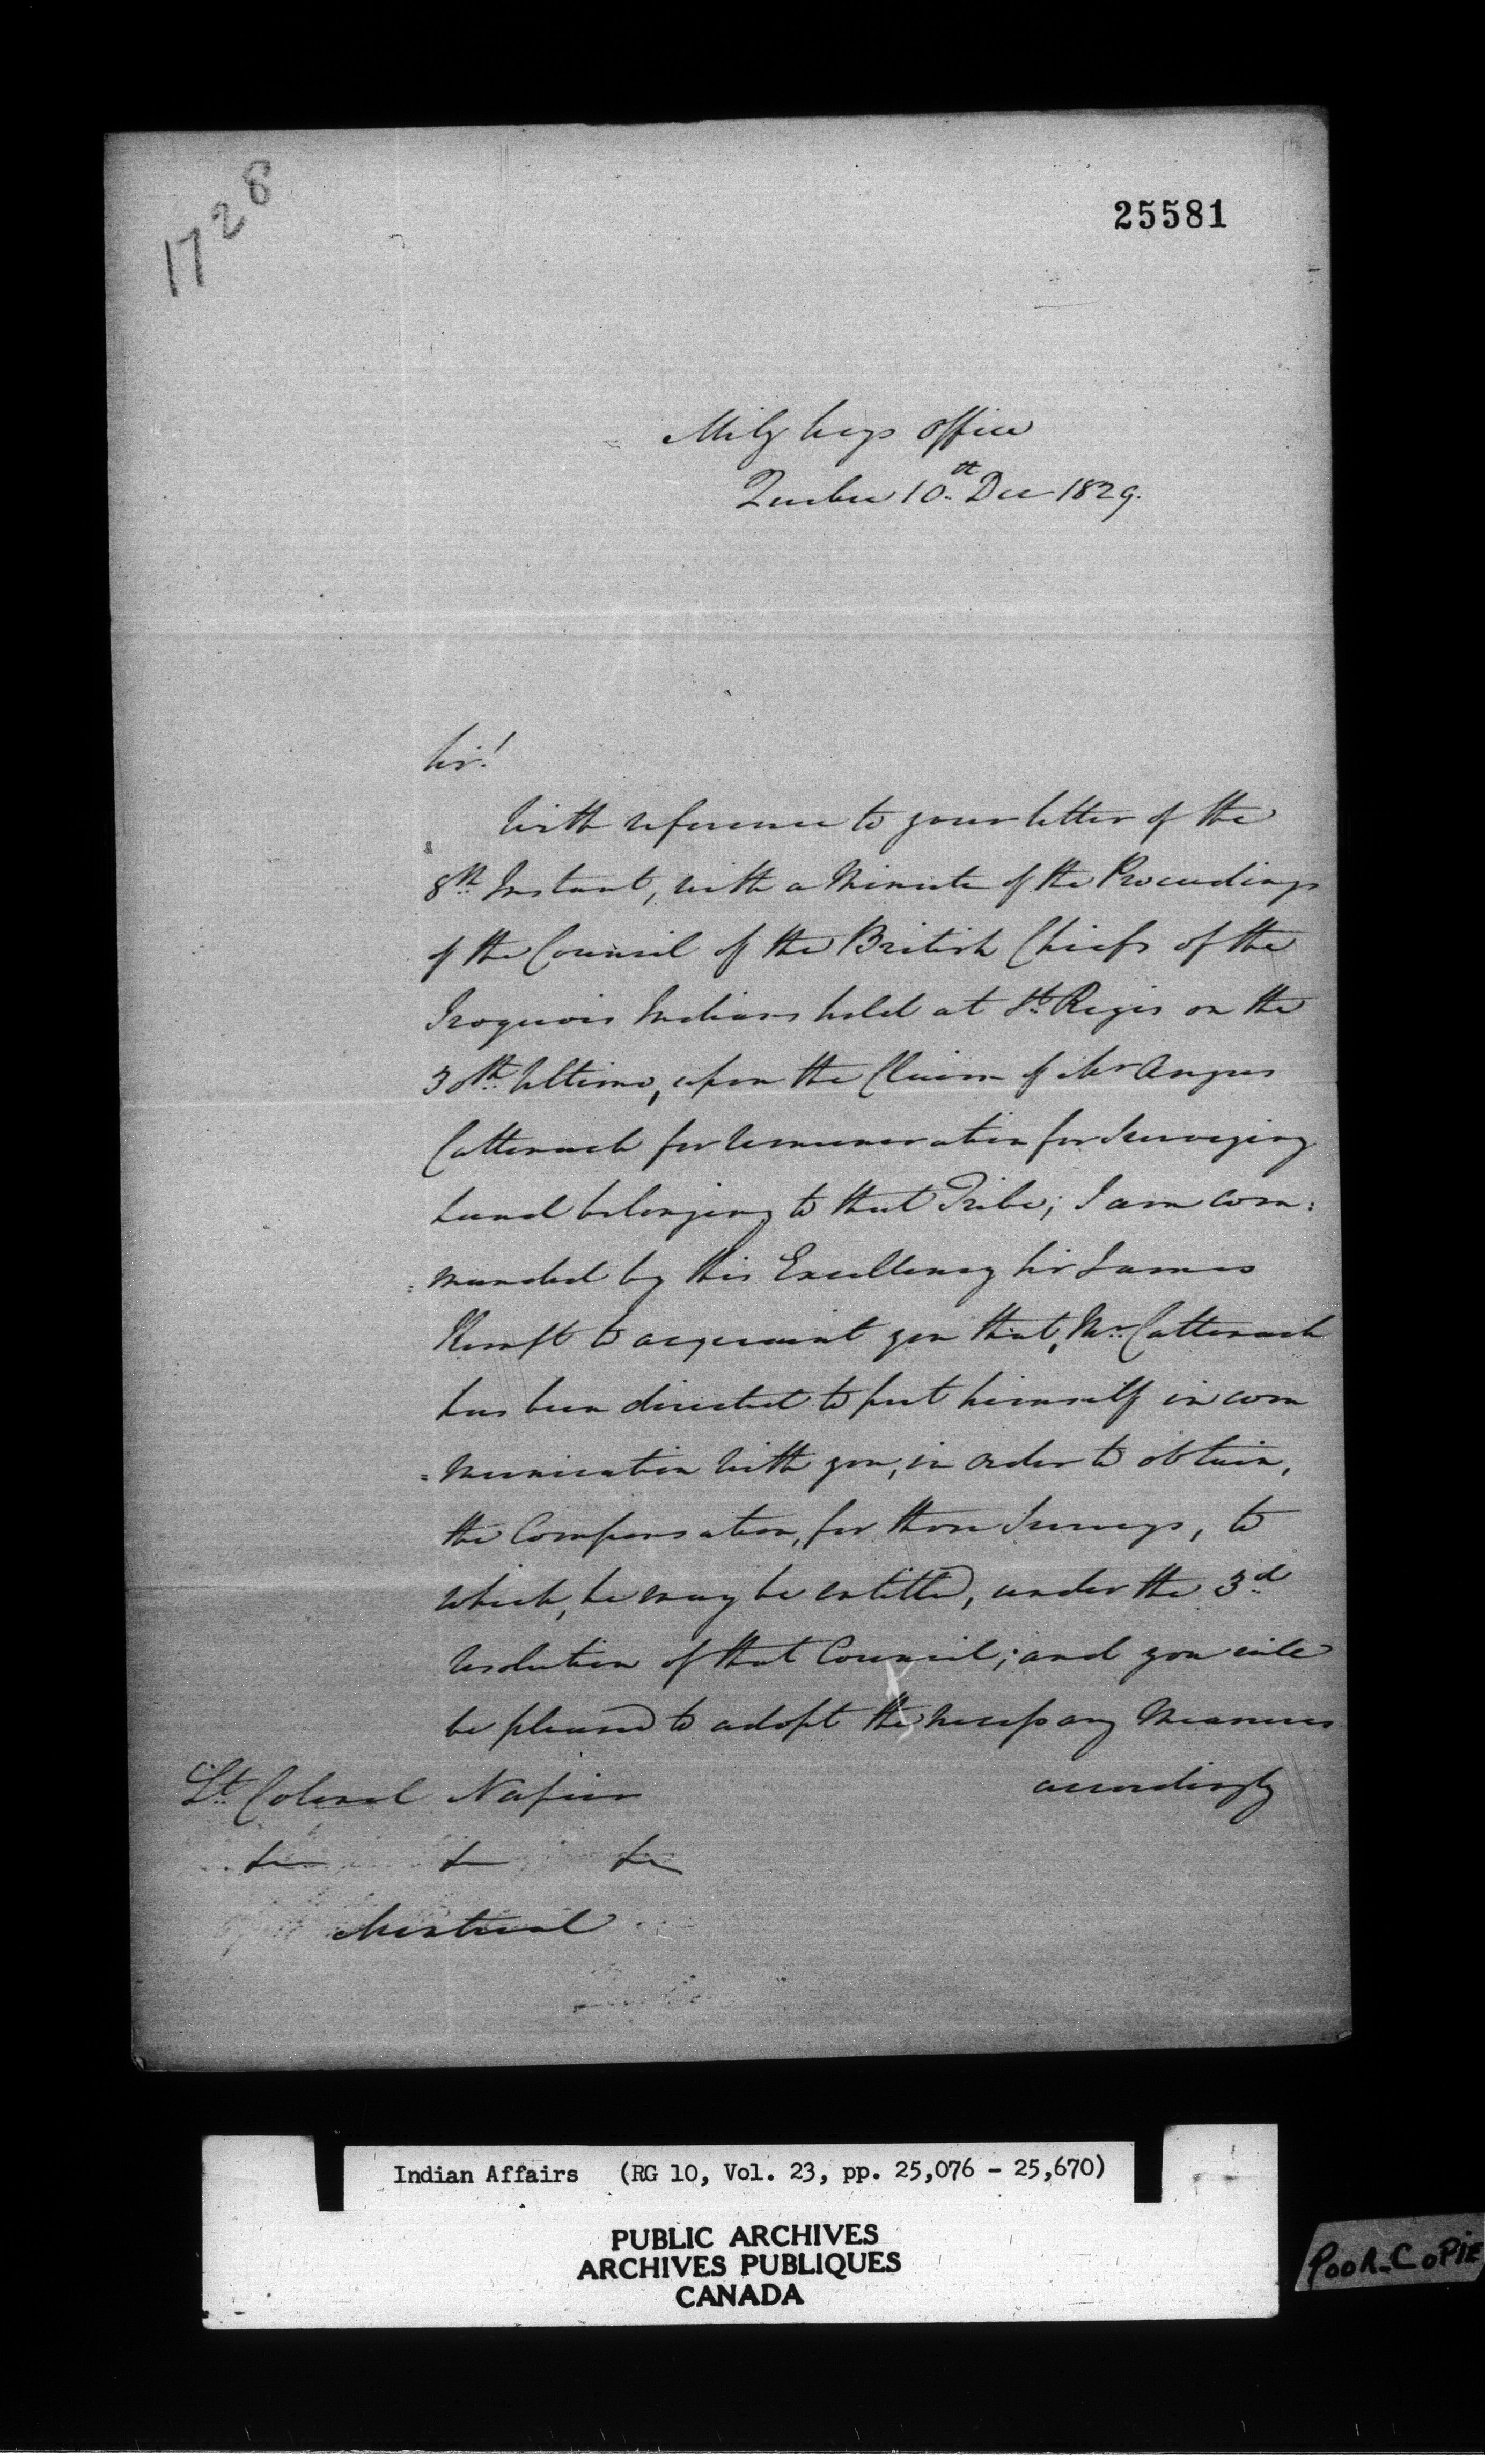 1728
25581
Mily Secys Office
Quebec 10th Dec 1829.
Sir!
With reference to your letter of the
8th Instant, with a Minute of the Proceedings
of the Council of the British Chiefs of the
Iroquois Indians held at St Regis on the
30th Ultimo, upon the Claim of Mr Angus
Cattanach for Remuneration for Surveying
Land belonging to that Tribe; I am com:
=manded by His Excellency Sir James
Kempt to acquaint you that, Mr Cattanach
has been directed to put himself in com
=munication with you, in order to obtain,
the Compensation, for those Surveys, to
which, he may be entitled, under the 3d
Resolution of that Council; and you will
be pleased to adopt the necessary Measures
accordingly
Lt Colonel Napier
&c &c &c
Montreal
Indian Affairs (RG 10, Vol. 23, pp. 25,076 - 25,670)
PUBLIC ARCHIVES
ARCHIVES PUBLIQUES
CANADA
POOR COPIE